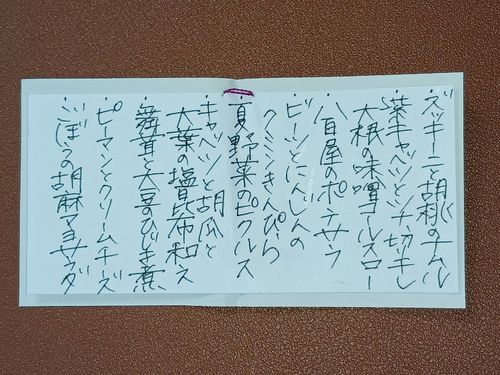 ・ズッキーニと胡桃のナムル
・紫キャベツとツナ、切干し
大根の味噌コールスロー
・八百屋のポテサラ
・ビーツとにんじんの
クミンきんぴら
・夏野菜のピクルス
・キャベツと胡瓜と
大葉の塩昆布和え
・舞茸と大豆のひじき煮
・ピーマンとクリームチーズ
・ごぼうの胡麻マヨサラダ